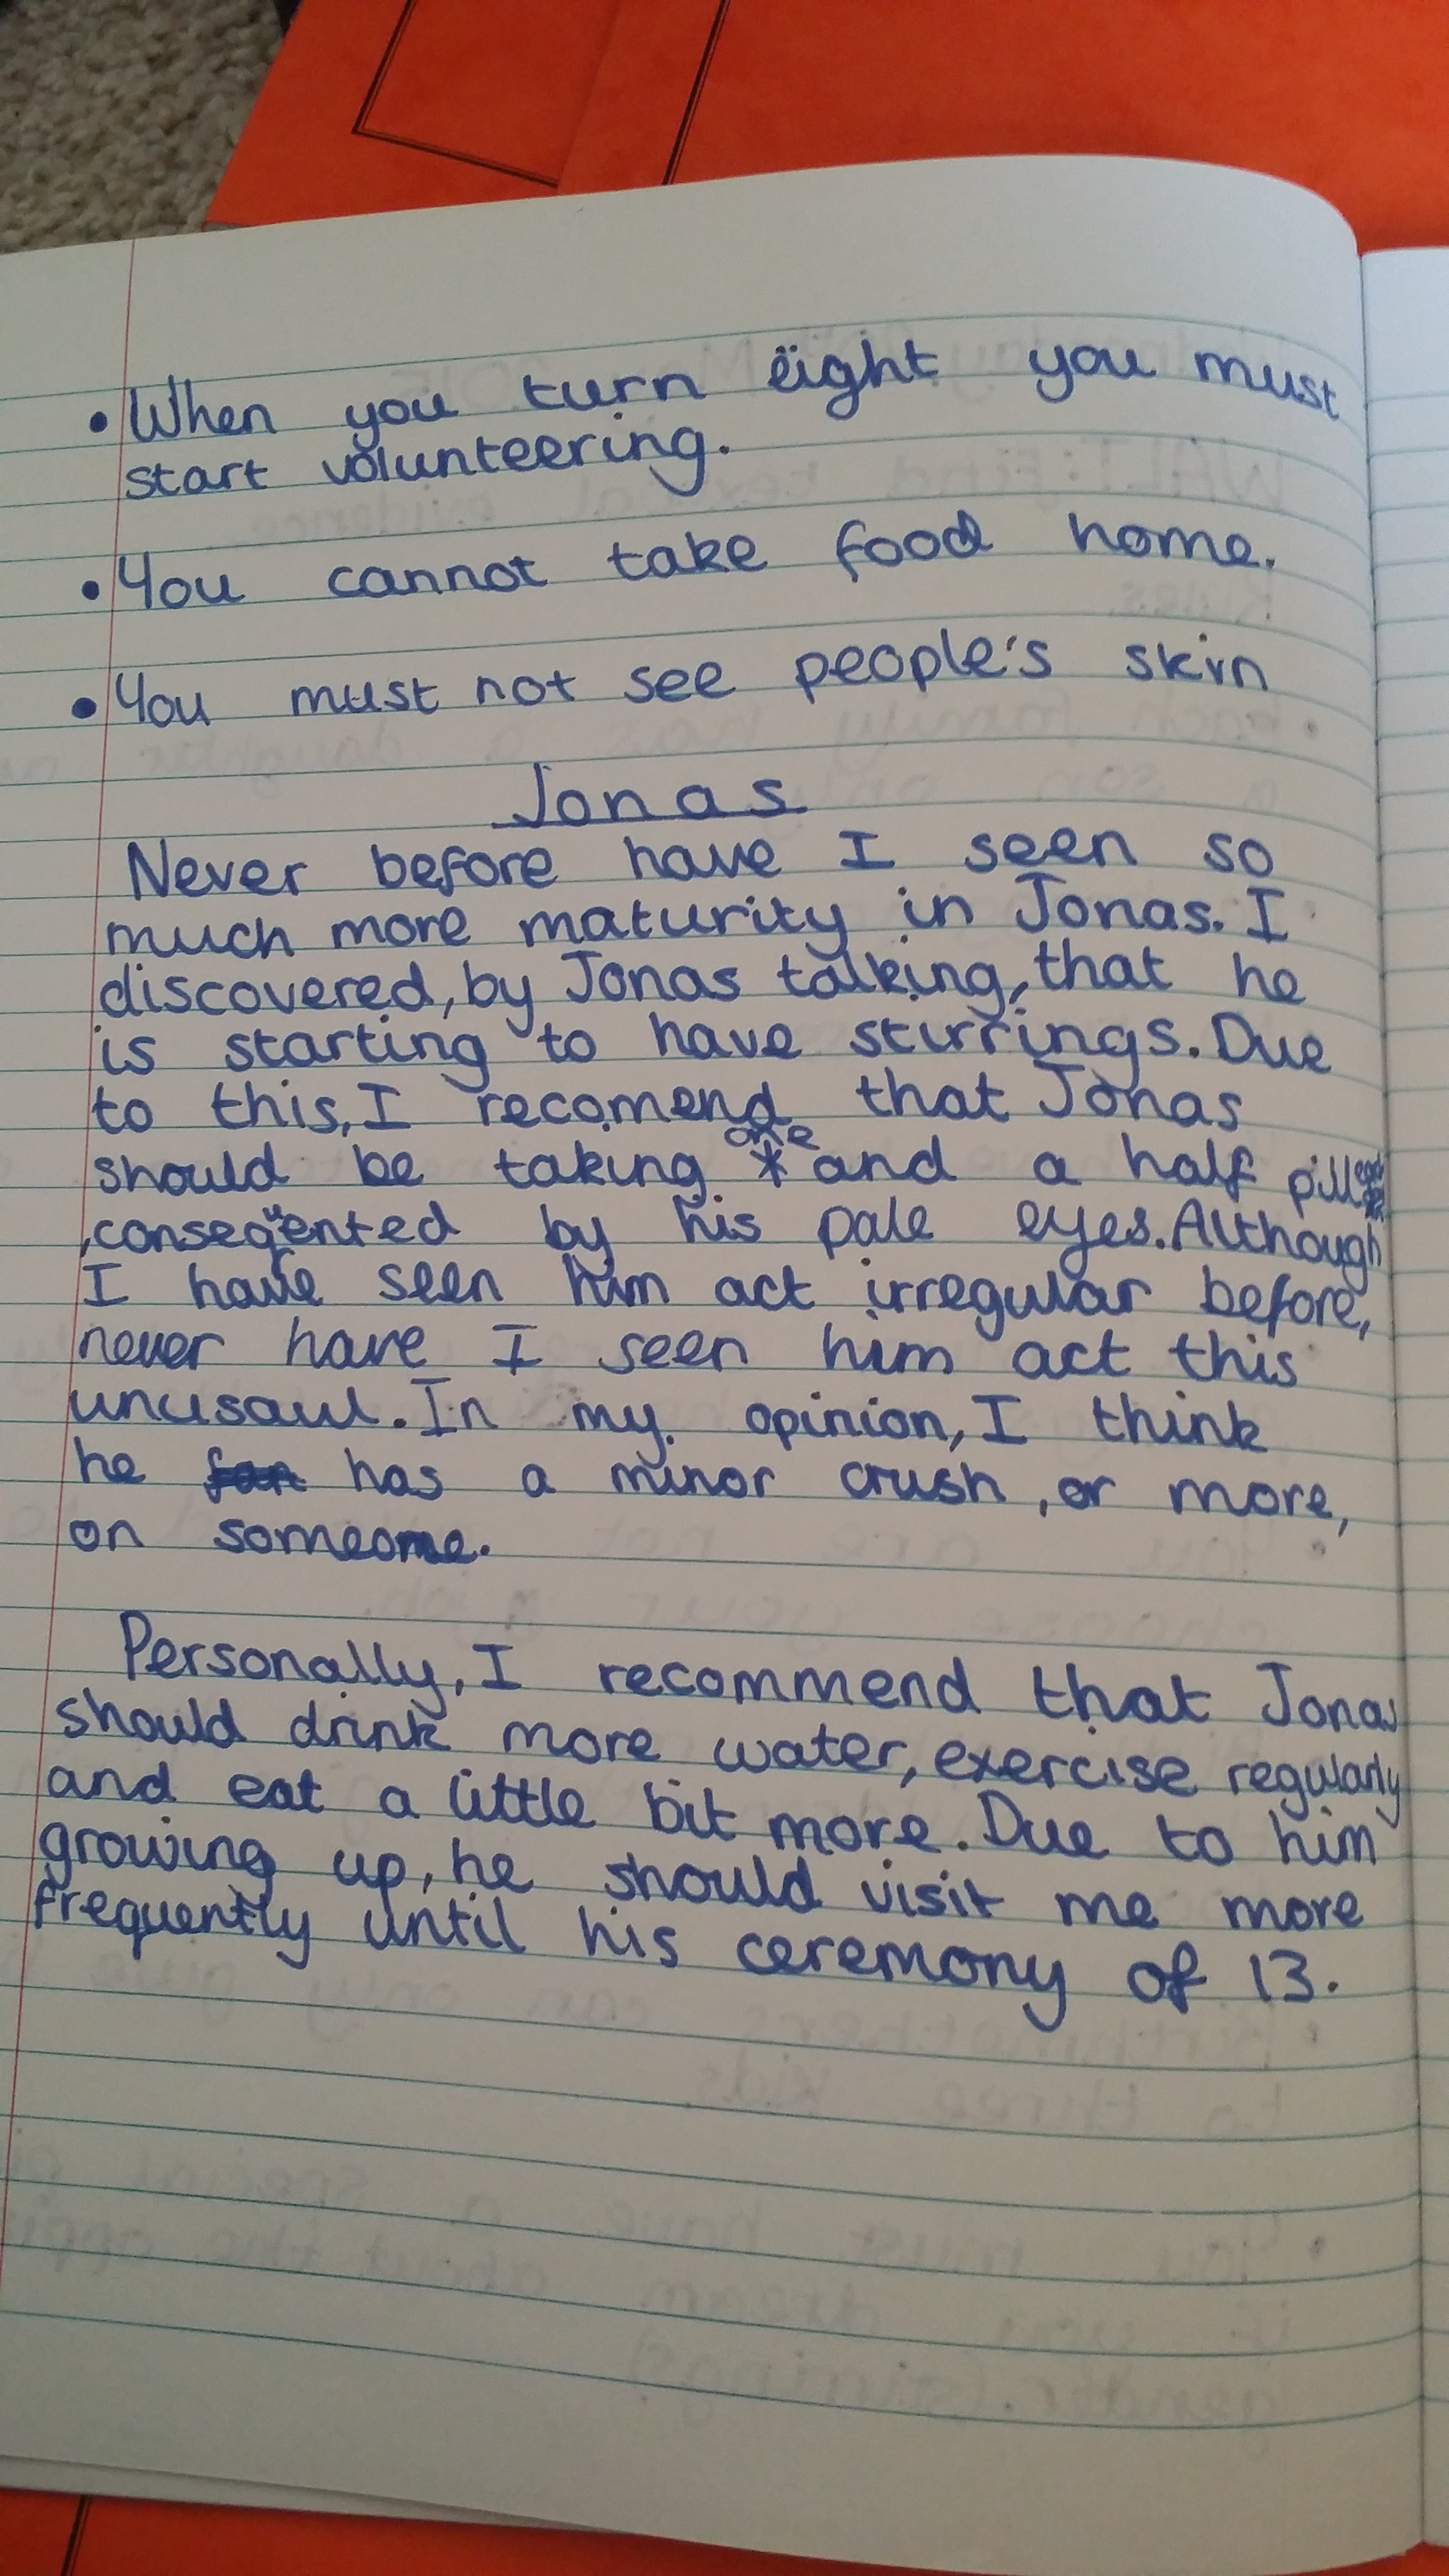 • When you turn eight you must
start volunteering.
• You cannot take food home.
• You must not see people's skin
Jonas
Never before have I seen so
much more maturity in Jonas. I
discovered, by Jonas talking, that he
is starting to have stirrings. Due
to this, I recomend that Jonas
one
should be taking * and a half pill
, consequented by his pale eyes. Although
I have seen him act irregular before,
never have I seen him act this
unusaul. In my opinion, I think
he has a minor crush, or more,
on someone.
Personally, I recommend that Jonas
should drink more water, exercise regularly
and eat a little bit more. Due to him
growing up, he should visit me more
frequently until his ceremony of 13.